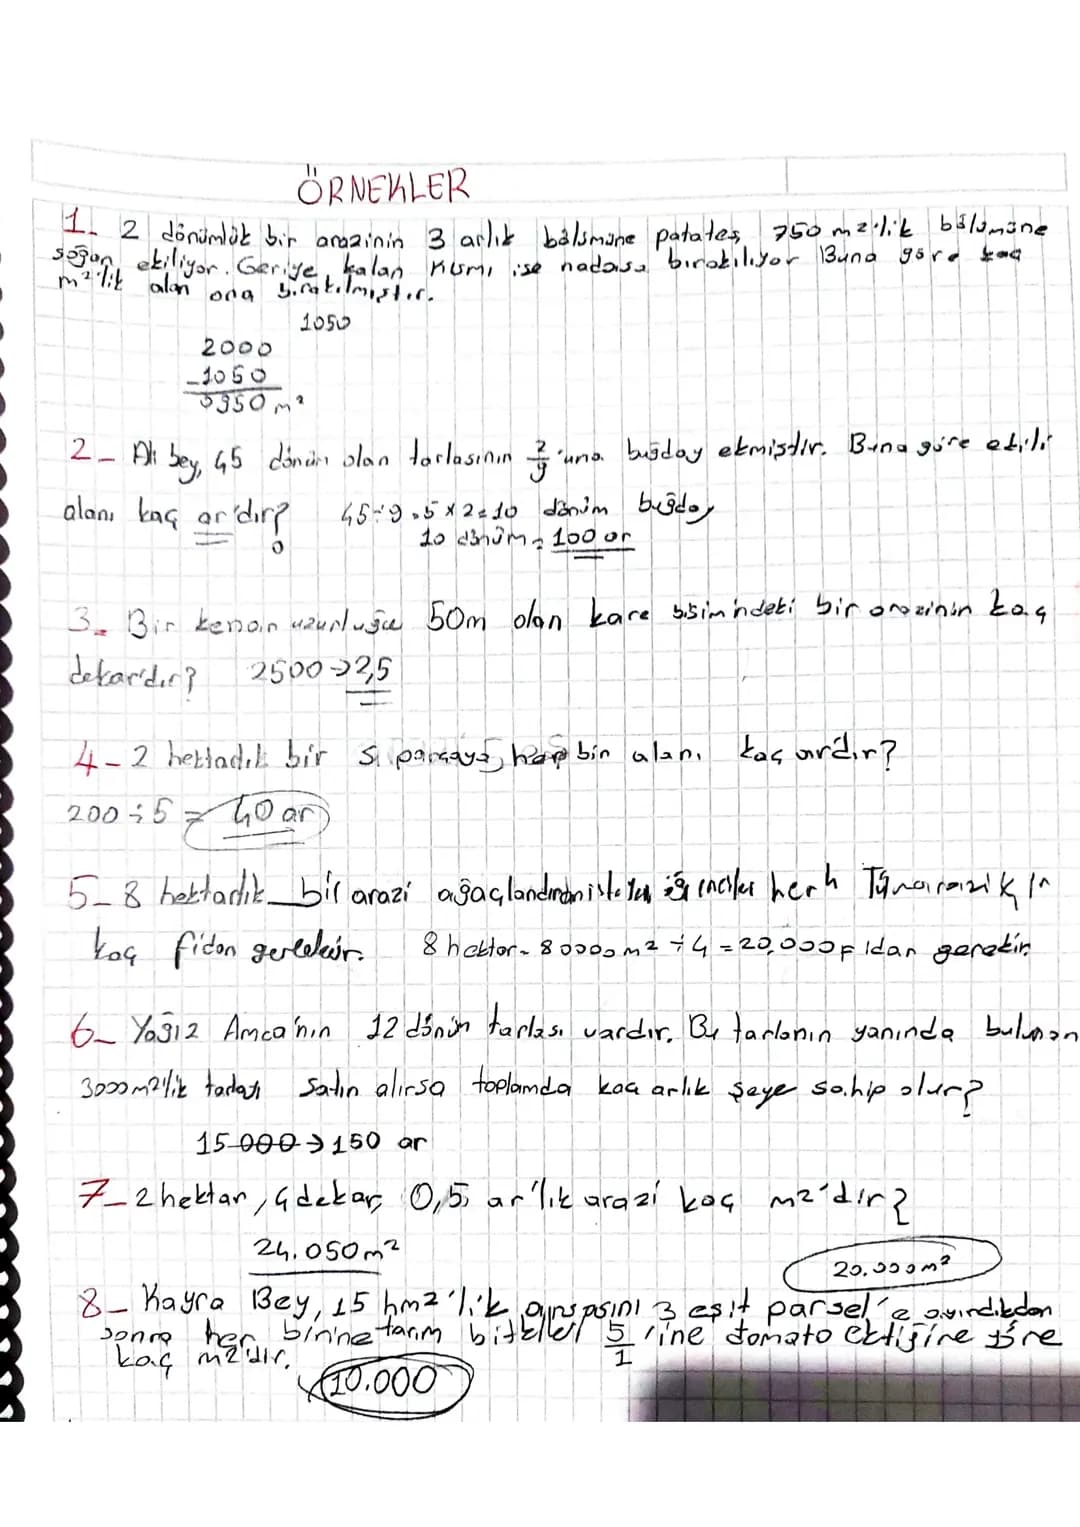 ÖRNEKLER
1. 2 dönümlük bir arazinin 3 arlık bölümüne patates, 750 m2'lik bölümüne
soğan ekiliyor. Geriye kalan kısmı ise nadasa bırakılıyor Buna göre kaç
m²'lik alan ona bırakılmıştır.
1050
2000
-1050
0950 m²
2- Ali bey, 45 dönüm olan tarlasının 2/9 'una buğday ekmiştir. Buna göre ekili
alanı kaç ar'dır? 45÷9.5x2=10 dönüm buğday
10 dönüm = 100 ar
3- Bir kenar uzunluğu 50m olan kare biçimindeki bir arazinin kaç
dekardır? 2500→2,5
4-2 hektarlık bir parçaya, bin alanı kaç ardır?
200÷5= 40 ar
5-8 hektarlık bir arazi
kaç fidan gerekir. 8 hektar- 80000m2 ÷4 =20,000 Fidan gerekir.
6- Yağız Amca'nın 12 dönüm tarlası vardır. Bu tarlanın yanında bulunan
3000m2'lik tarlayı satın alırsa toplamda kaç arlık şeye sahip olur?
15.000→150 ar
7-2 hektar, 4 dekar, 0,5 ar'lık arazi kaç m2'dir?
24.050m²
20.000m²
8- Kayra Bey, 15 hm2'lik arpasını 3 eşit parsel'e ayırdıkdan
sonra her birine tarım bitkileri 5/1 'ine domato ektiğine göre
kaç m2'dir.
10.000